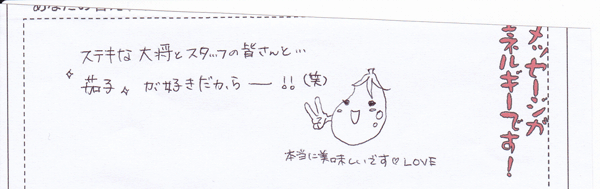 ステキな大将とスタッフの皆さんと…
茄子が好きだからー!!(笑)
本当に美味しいです♡LOVE
メッセージが
ネルギーです!